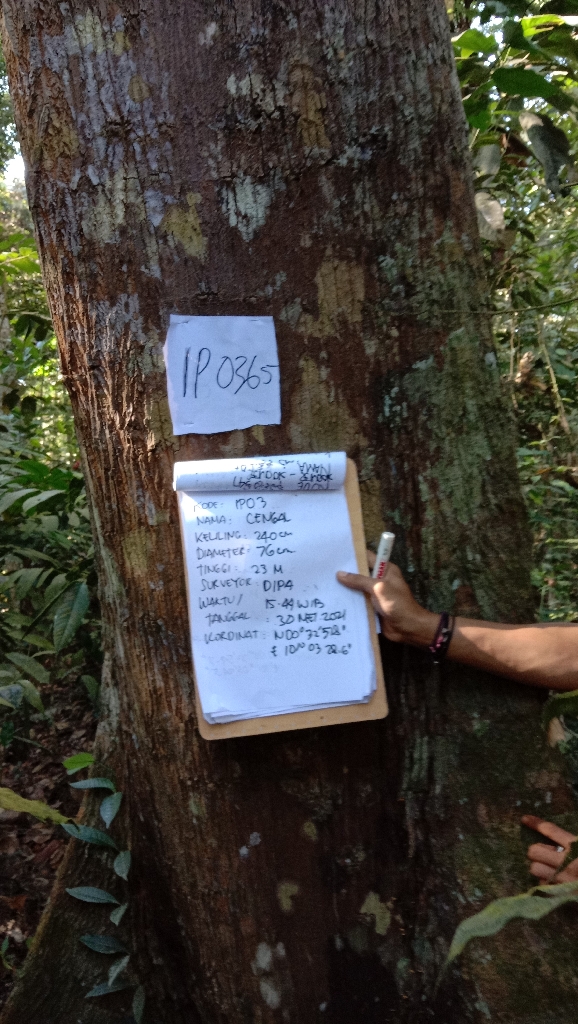 IP0365
KODE: IP03
NAMA: CENGAL
KELILING: 240cm
DIAMETER: 76cm
TINGGI: 23 M
SURVEYOR: DIPA
WAKTU/ 15.49 WIB
TANGGAL: 20 MET 2021
KORDINAT: N00° 32'
E 101° 03